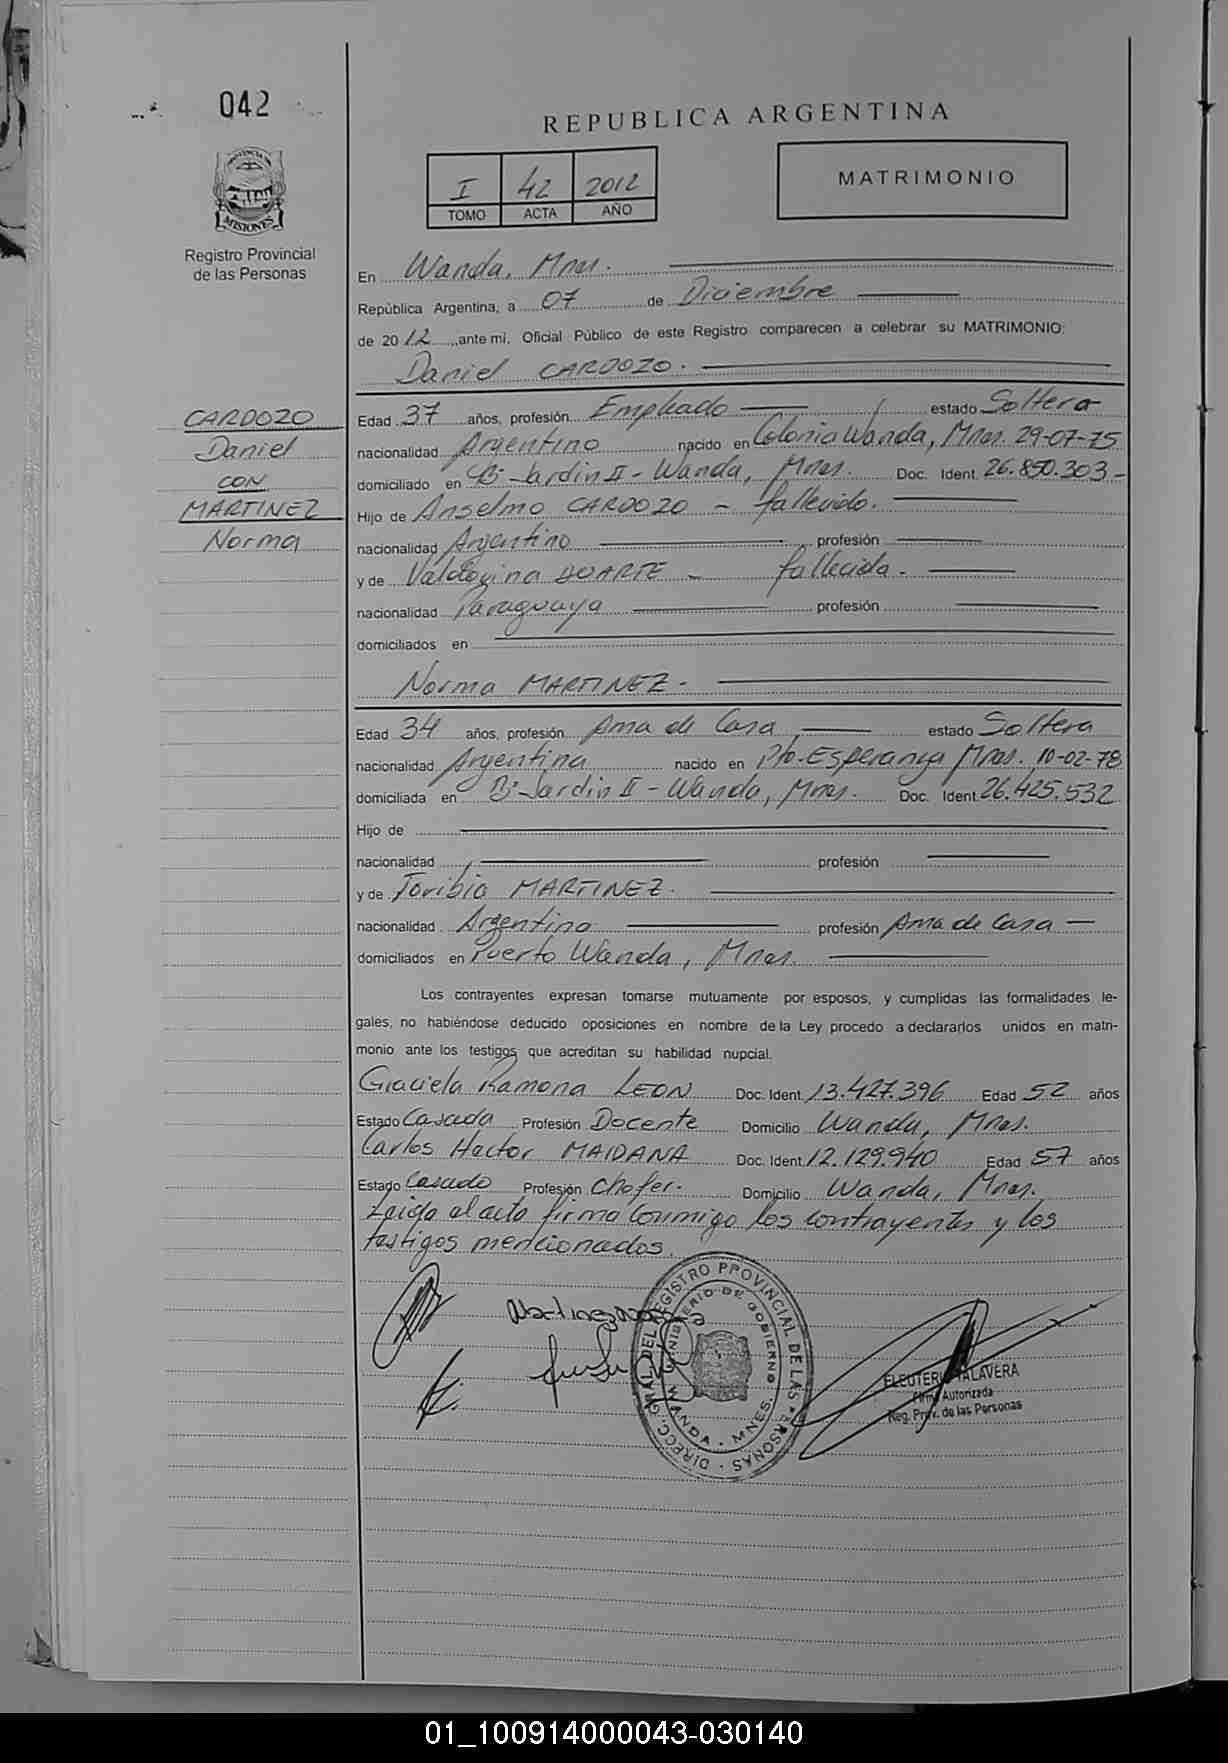 042
REPUBLICA ARGENTINA
I 42 2012
TOMO ACTA AÑO
MATRIMONIO
PROVINCIA DE
MISIONES
Registro Provincial
de las Personas
En Wanda, Mnes.
República Argentina, a 07 de Diciembre
de 2012 ante mi, Oficial Público de este Registro comparecen a celebrar su MATRIMONIO:
Daniel CARDOZO.
CARDOZO
Daniel
CON
MARTINEZ
Norma
Edad 37 años, profesión Empleado estado Soltero
nacionalidad Argentino nacido en Colonia Wanda, Mnes. 29-07-75
domiciliado en B° Jardin II - Wanda, Mnes. Doc. Ident. 26.850.303-
Hijo de Anselmo CARDOZO - fallecido.
nacionalidad Argentino profesión
y de DUARTE - fallecida.
nacionalidad Paraguaya profesión
domiciliados en
Norma MARTINEZ.
Edad 34 años, profesión Ama de Casa estado Soltera
nacionalidad Argentina nacido en Pto. Esperanza Mnes. 10-02-78
domiciliada en B° Jardin II - Wanda, Mnes. Doc. Ident. 26.425.532
Hijo de
nacionalidad profesión
y de Toribia MARTINEZ.
nacionalidad Argentina profesión Ama de Casa
domiciliados en Puerto Wanda, Mnes.
Los contrayentes expresan tomarse mutuamente por esposos, y cumplidas las formalidades le-
gales, no habiéndose deducido oposiciones en nombre de la Ley procedo a declararlos unidos en matri-
monio ante los testigos que acreditan su habilidad nupcial.
Graciela Ramona LEON Doc. Ident. 13.427.396 Edad 52 años
Estado Casada Profesión Docente Domicilio Wanda, Mnes.
Carlos Hector MAIDANA Doc. Ident. 12.129.940 Edad 57 años
Estado Casado Profesión Chofer. Domicilio Wanda, Mnes.
Leida el acta firma conmigo los contrayentes y los
testigos mencionados.
DIRECC. GRAL. DEL REGISTRO PROVINCIAL DE LAS PERSONAS
MINISTERIO DE GOBIERNO
WANDA - MNES.
ELEUTERIO TALAVERA
Firma Autorizada
Reg. Prov. de las Personas
01_100914000043-030140